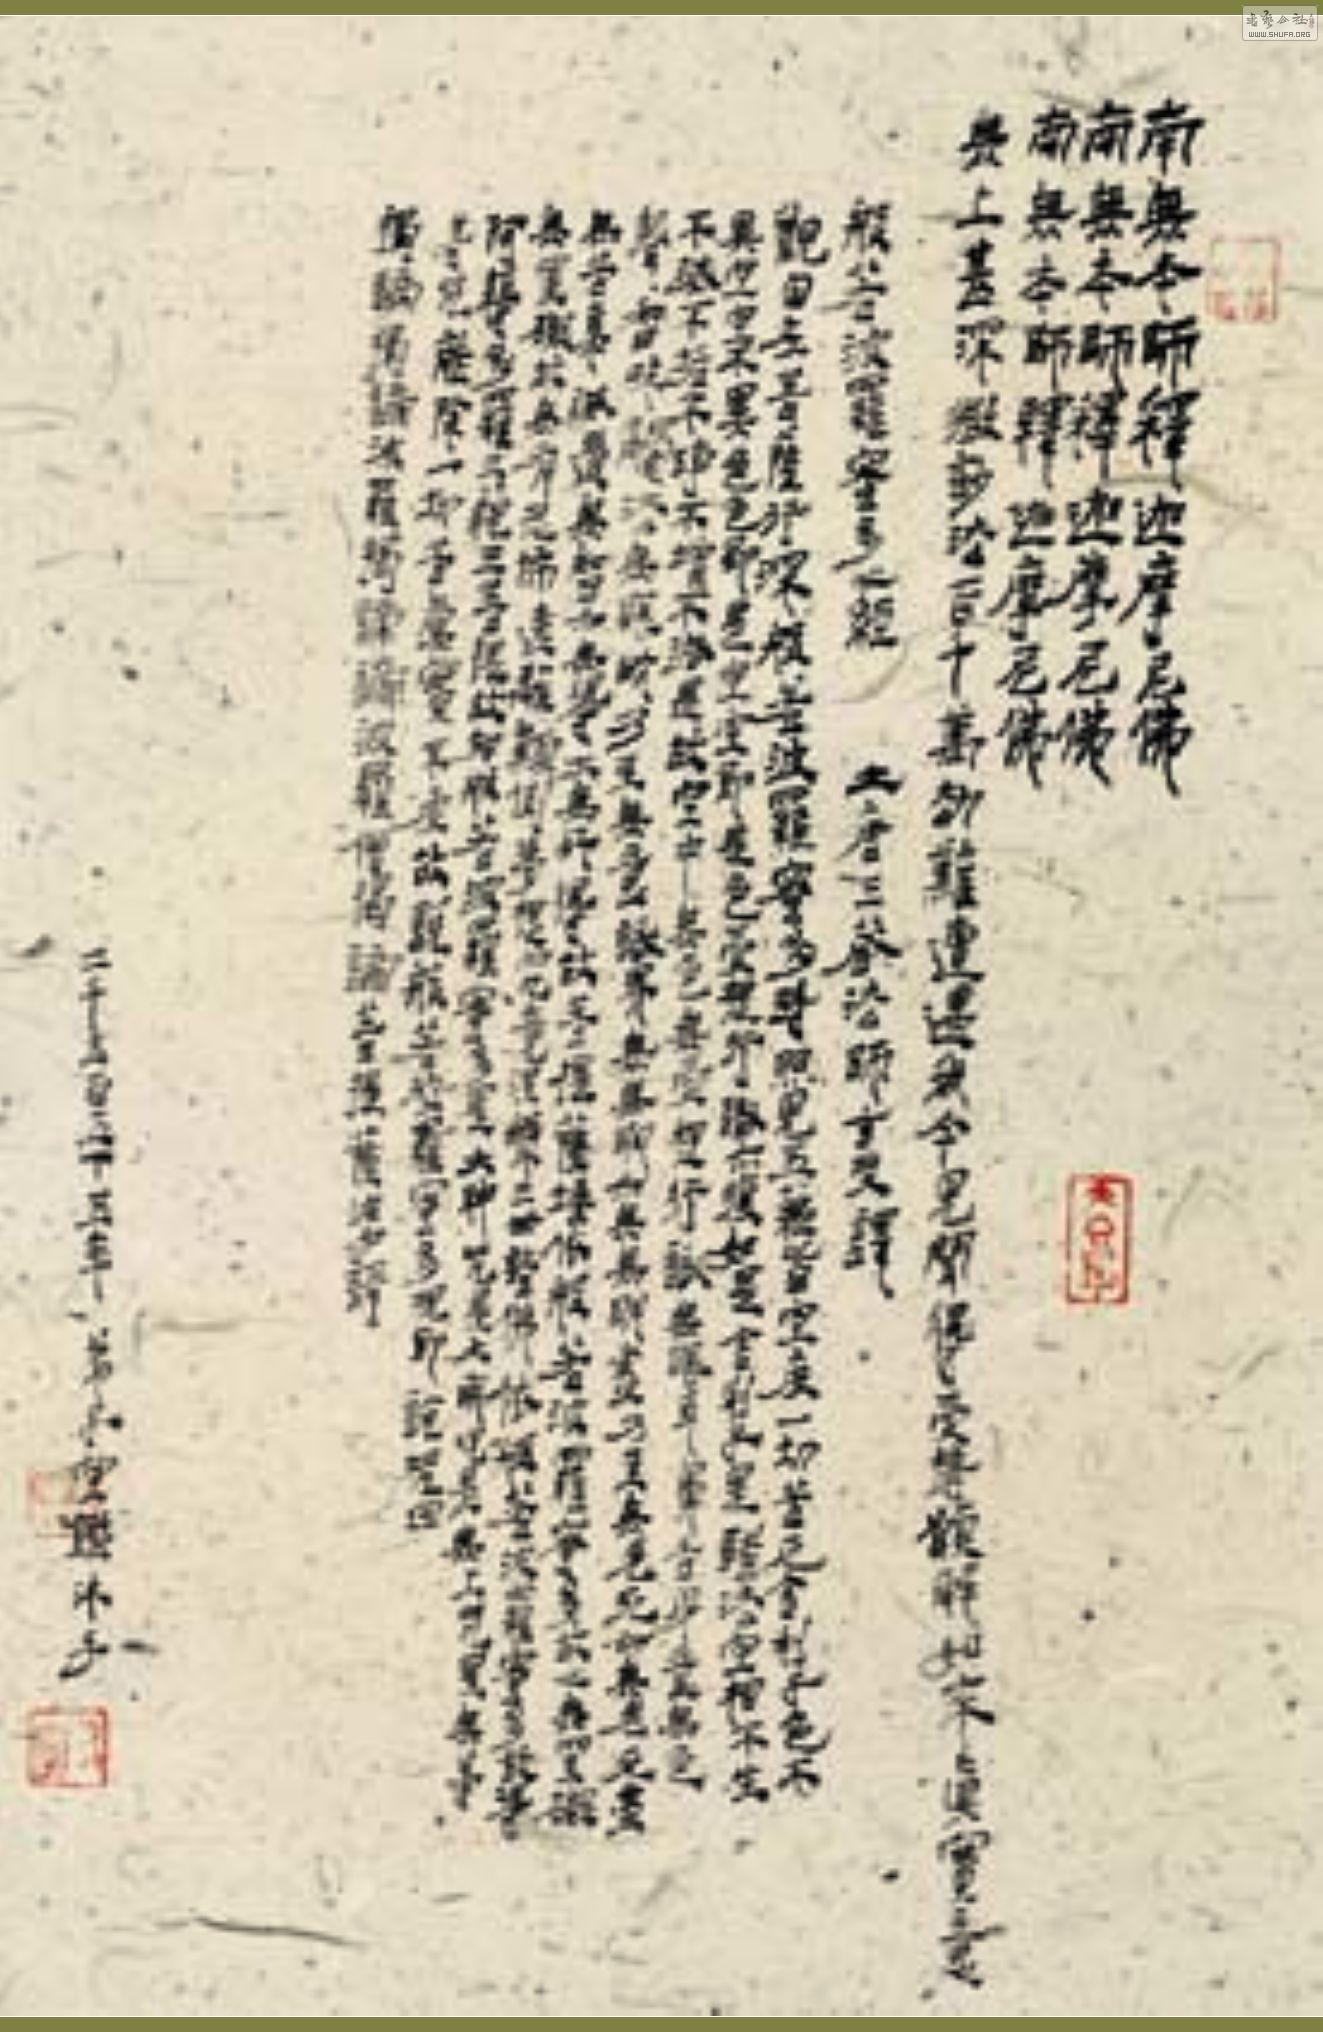 南無本師釋迦摩尼佛
南無本師釋迦摩尼佛
南無本師釋迦摩尼佛
無上甚深微妙法百千萬劫難遭遇我今見聞得受持願解如來真實意
般若波羅密多心經 大唐三藏法師玄奘譯
觀自在菩薩行深般若波羅密多時照見五蘊皆空度一切苦厄舍利子色不
異空空不異色色即是空空即是色受想行識亦復如是舍利子是諸法空相不生
不滅不垢不淨不增不減是故空中無色無受想行識無眼耳鼻舌身意無色
聲香味觸法無眼界乃至無意識界無無明亦無無明盡乃至無老死亦無老死盡
無苦集滅道無智亦無得以無所得故菩提薩埵依般若波羅密多故心無罣礙
無罣礙故無有恐怖遠離顛倒夢想究竟涅槃三世諸佛依般若波羅密多故得
阿耨多羅三藐三菩提故知般若波羅密多是大神咒是大明咒是無上咒是無等
等咒能除一切苦真實不虛故說般若波羅密多咒即說咒曰
揭諦揭諦波羅揭諦波羅僧揭諦菩提薩婆訶
二千五百
WWW.SHUFA.ORG